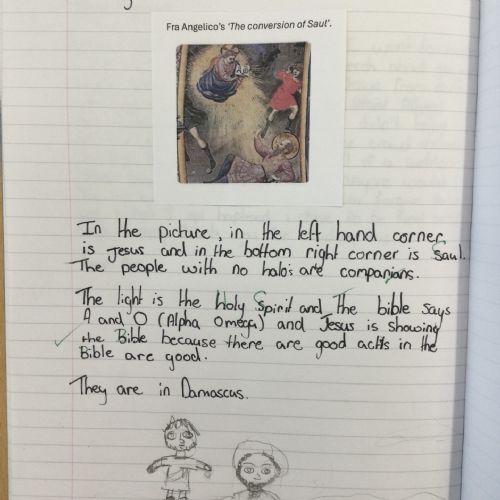 Fra Angelico's 'The conversion of Saul'.
In the picture, in the left hand corner
is Jesus and in the bottom right corner is Saul.
The people with no halo's are companians.
The light is the Holy Spirit and the bible says
A and O (Alpha Omega) and Jesus is showing
the Bible because there are good acts in the
Bible are good.
They are in Damascus.